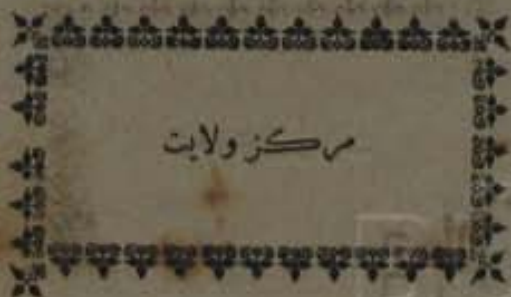 مركز ولايت